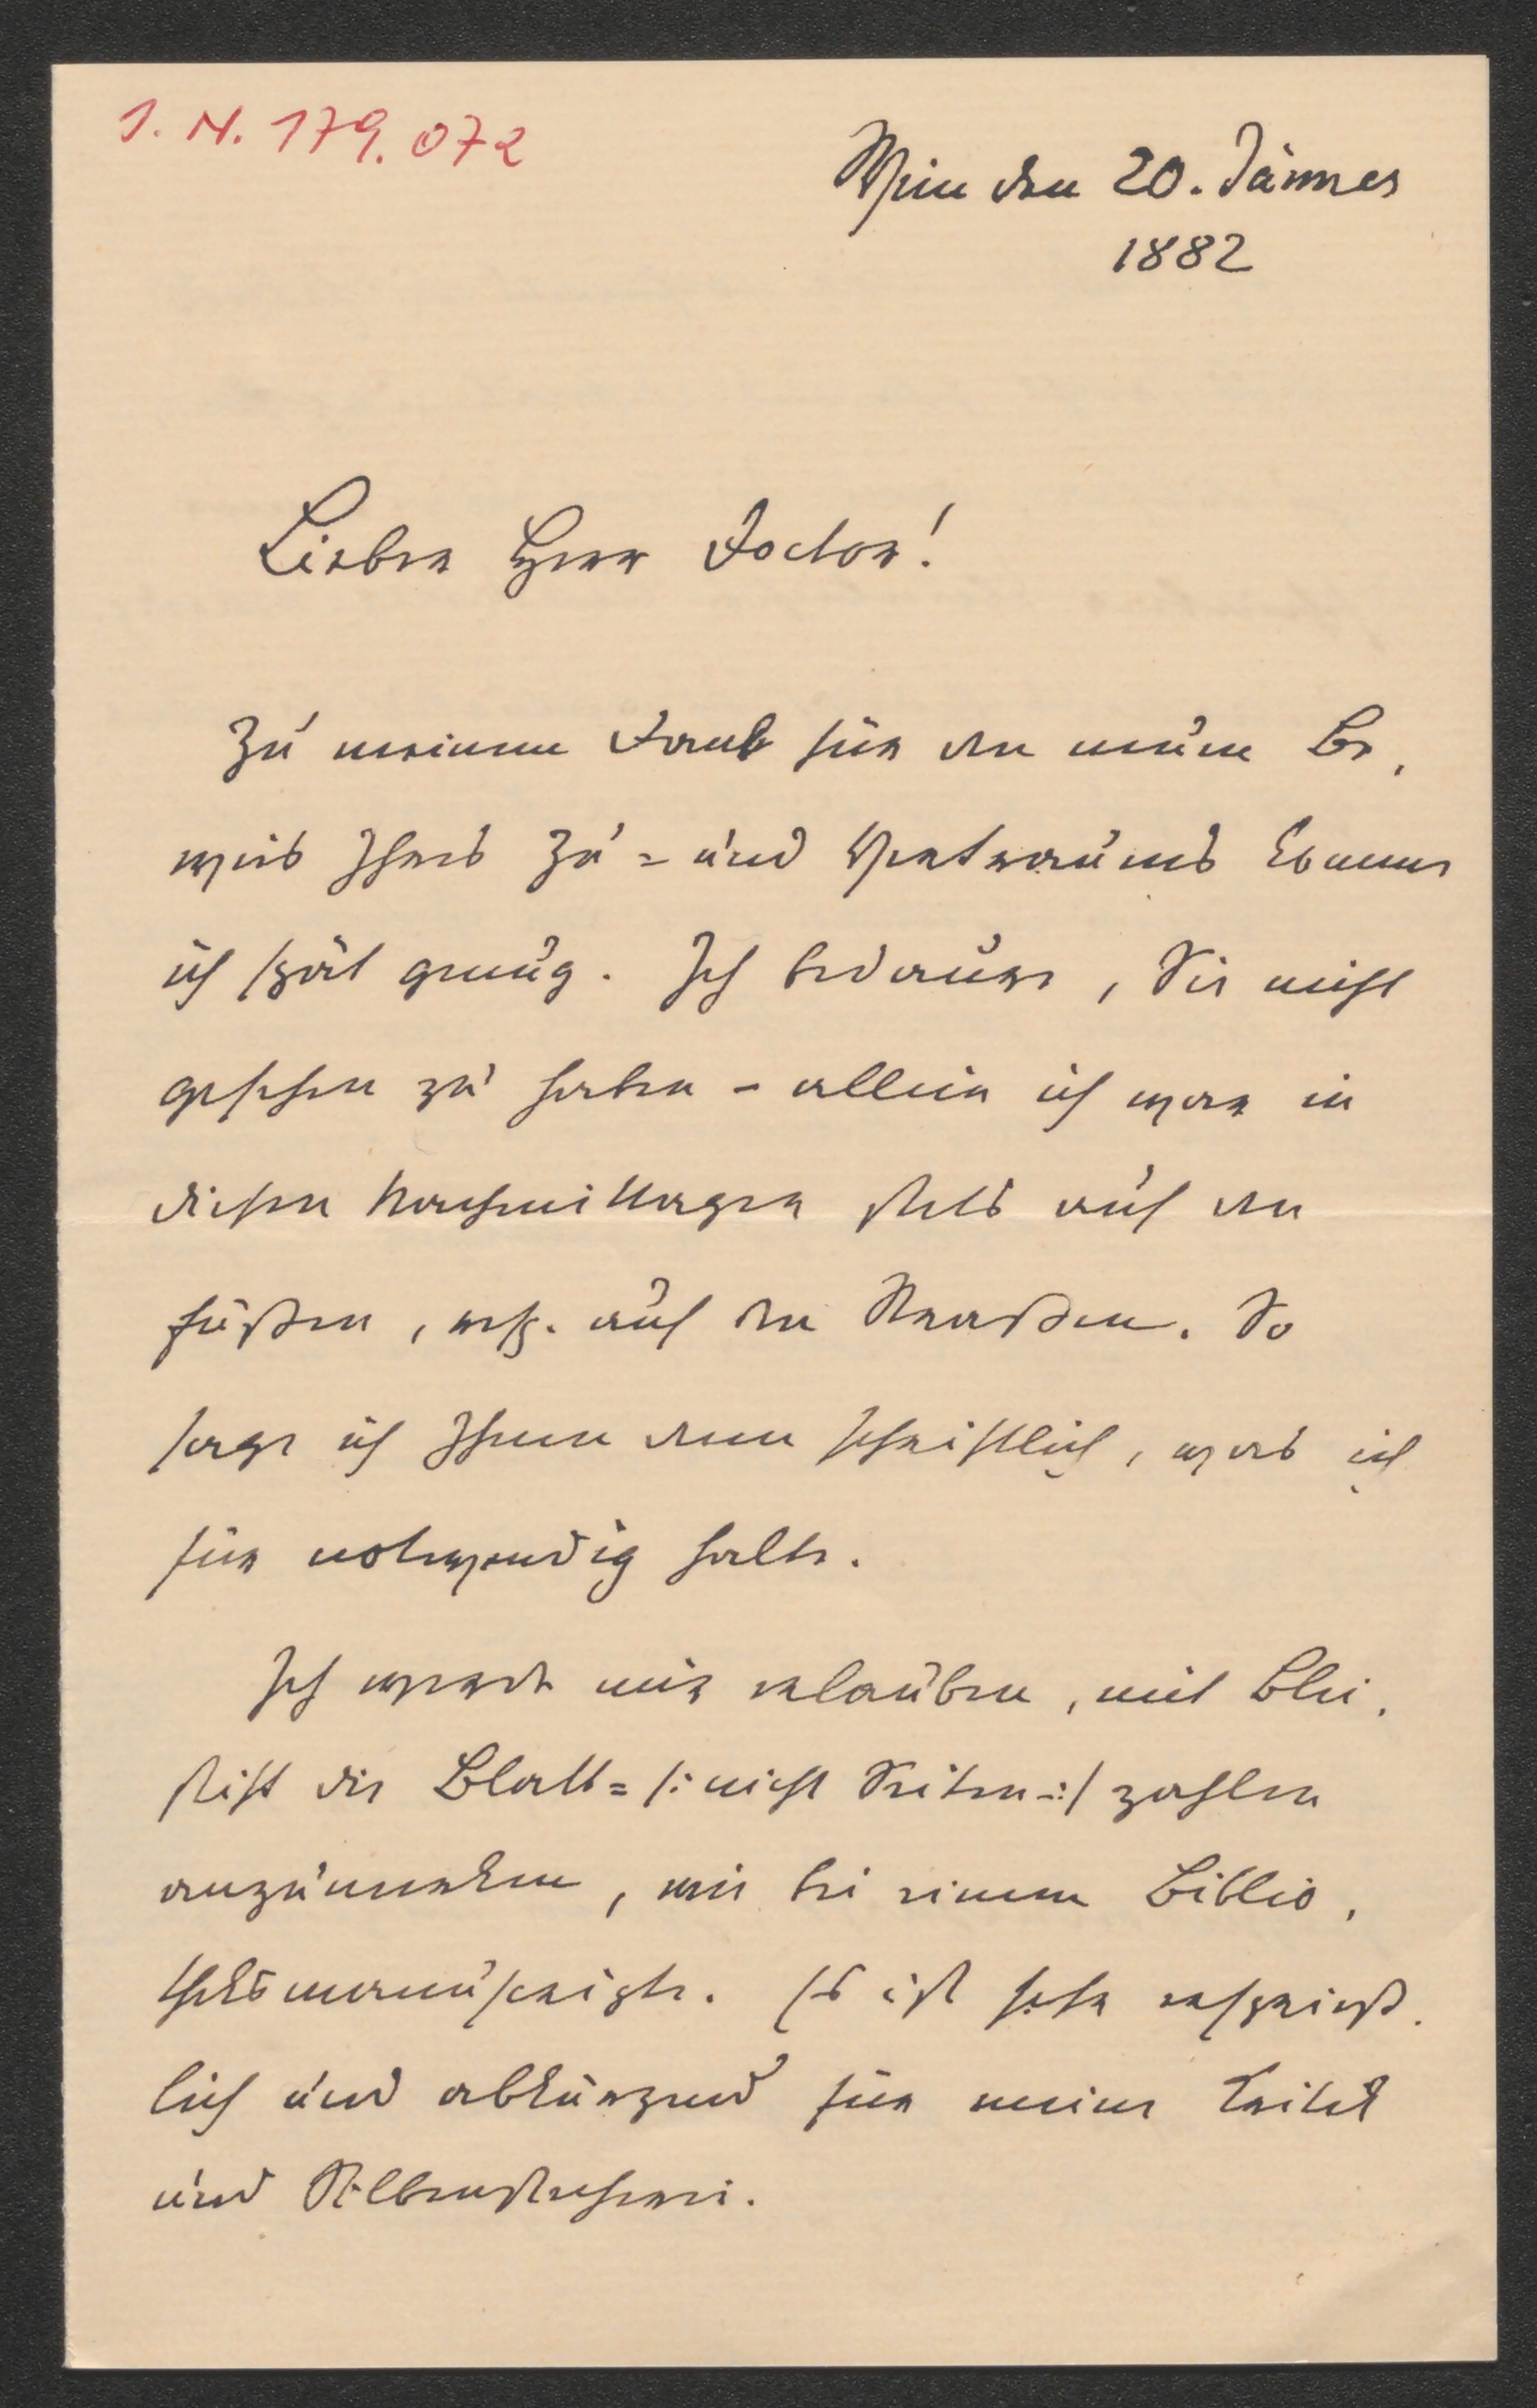 I. N. 179.072
Wien den 20. Jänner
1882
Lieber Herr Doctor!
Zu meinem Dank für den neuen Be,
weis Ihres Zu= und Vertrauens komme
ich spät genug. Ich bedaure, Sie nicht
gesehen zu haben – allein ich war in
diesen Nachmittagen stets auf den
Füßen, resp. auf den Straßen. So
sage ich Ihnen denn schriftlich, was ich
für notwendig halte.
Ich werde mir erlauben, mit Blei,
stift die Blatt= /: nicht Seiten :/ zahlen
anzumerken, wie bei einem Biblio,
theksmanuscripte. Es ist sehr ersprieß,
lich und abkürzend für meine Kritik
und Silbenstecherei.